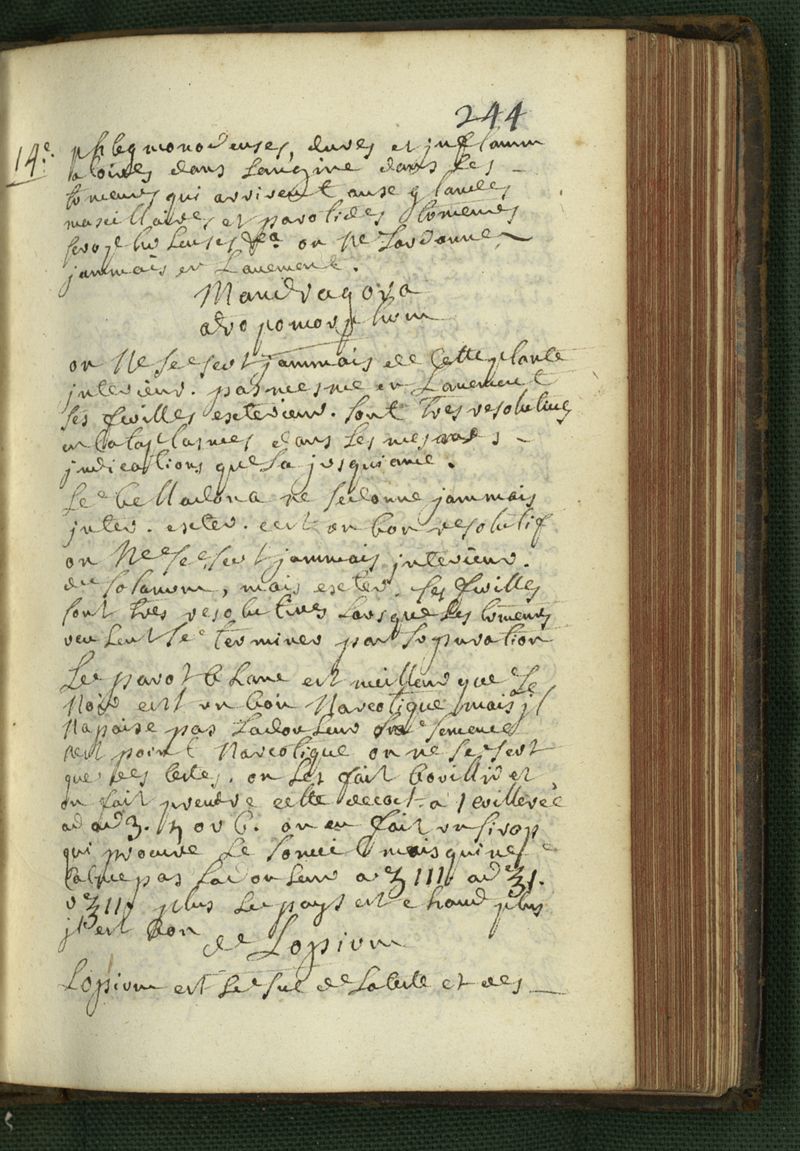 244
14e. phlegmonodeuses, dures et inflamm
atoires dans Langine dans Les
tomeurs qui arrivent ause glandes
maxillaires et parotides tomeurs
scrophuleuses &a on Ne Lordonne
jammais en Lavement.
Mandragora
atropomorphum
on Ne se sert jammais de Cette plante
interieur. pas mesme en Lavement
ses fwilles exterieur. sont tres resolutives
en cataplasmes dans Les mesmes
jndications que La jusquiame.
Le belladona ne se donne jammais
inter. exter. cest on bon resolutif
on Ne se sert jammais interieur.
du solanum, mais exter. ses fwilles
sont tres resolutives Lorsque Les tomeurs
veulent se terminer par supuration
Le pavot bLanc est meilleur que Le
Noir est un bon Narcotique mais jl
Napaise pas Ladouleur semence
nest point Narcotique on ne se sert
que des testes. on Les fait bovillir et
on fait prendre cette decoct. a 1 cvilleree
ad 3. 4 ov 6. on en fait un sirop
qui procure Le someil mais qui ne
calme pas Ladouleur a ʒ III. ad ℥ j.
ʒ II. plus Le pays est chaud plus
jl est bon
de Lopium
Lopium est Le suc de La teste et des